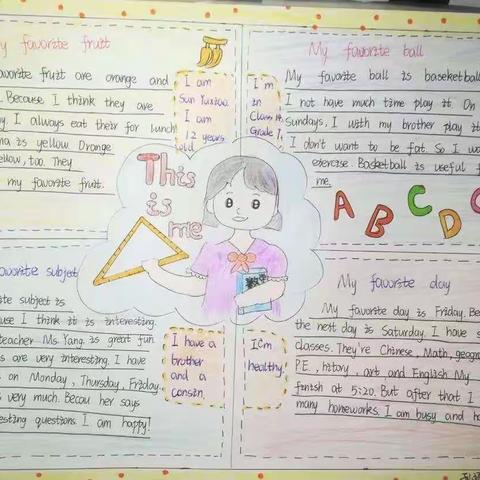 y favorite fruit
avorite fruit are orange and
. Because I think they are
y. I always eat their for lunch
na is yellow. Orange
ellow, too. They
my favorite fruit.
I am
Sun Yuxiao.
I am
12 years
old.
My favorite ball
I'm
in
Class 14,
Grade 7.
My favorite ball is baseketball
I not have much time play it. On
Sundays, I with my brother play it
I don't want to be fat. So I wo
exercise. Basketball is useful f
me.
This
is
me
A B C D
avorite subject
te subject is
use I think it is interesting.
teacher Ms Yang. is great fun.
s are very interesting. I have
s on Monday, Thursday, Friday.
s very much. Becau her says
esting questions. I am happy!
I have a
brother
and a
consin.
I'm
healthy.
My favorite day
My favorite day is Friday. Be
the next day is Saturday. I have s
classes. They're Chinese, Math, geogra
P.E., hitory, art and English My
finish at 5:20. But after that I
many homeworks. I am busy and ha